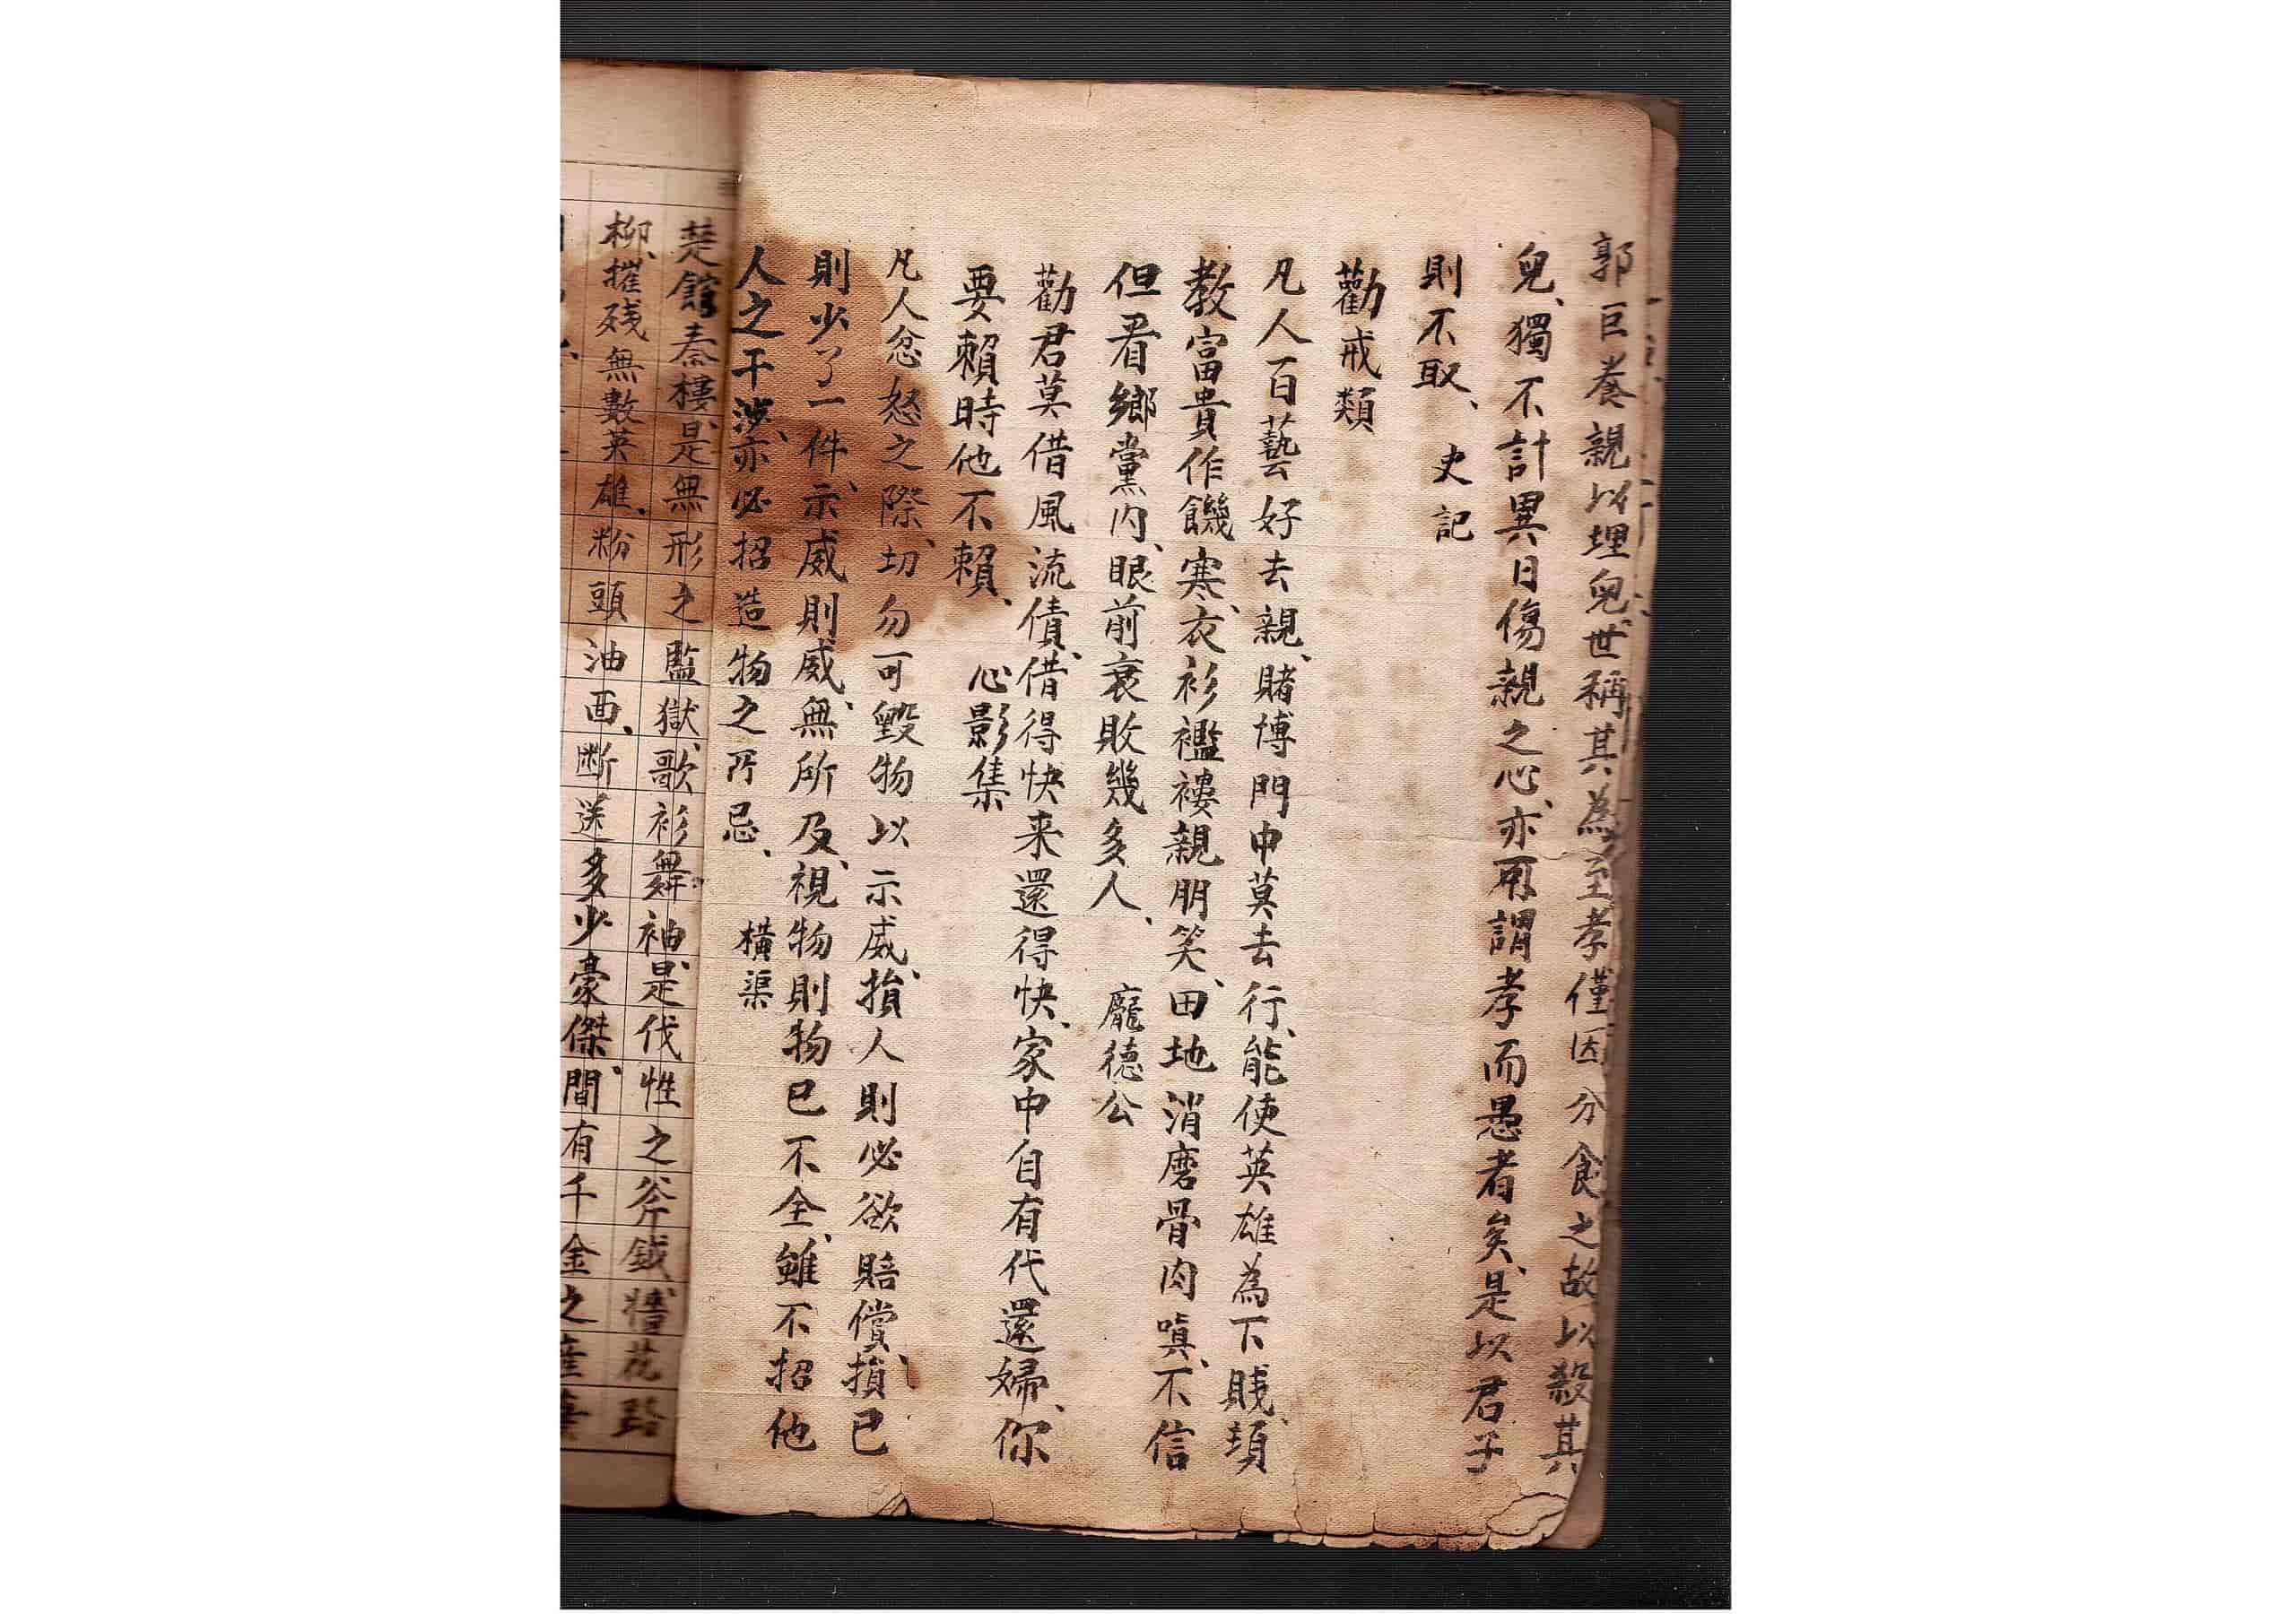 郭巨養親以埋兒、世稱其為至孝、僅因分食之故、以殺其
兒、獨不計異日傷親之心、亦可謂孝而愚者矣、是以君子
則不取、史記
勸戒類
凡人百藝好去親、賭博門中莫去行、能使英雄為下賤、
教富貴作饑寒、衣衫襤褸親朋笑、田地消磨骨肉嗔、不信
但看鄉黨內、眼前衰敗幾多人、龐德公
勸君莫借風流債、借得快来還得快、家中自有代還婦、你
要賴時他不賴、心影集
凡人忿怒之際、切勿可毀物以示威、損人則必欲賠償、損已
則少了一件、示威則威、無所及、視物則物已不全、雖不招他
人之干涉、亦必招造物之所忌、橫渠
楚館秦樓、是無形之監獄、歌衫舞袖、是伐性之斧鉞、墻花路
柳、摧残無數英雄、粉頭油面、断送多少豪傑、間有千金之